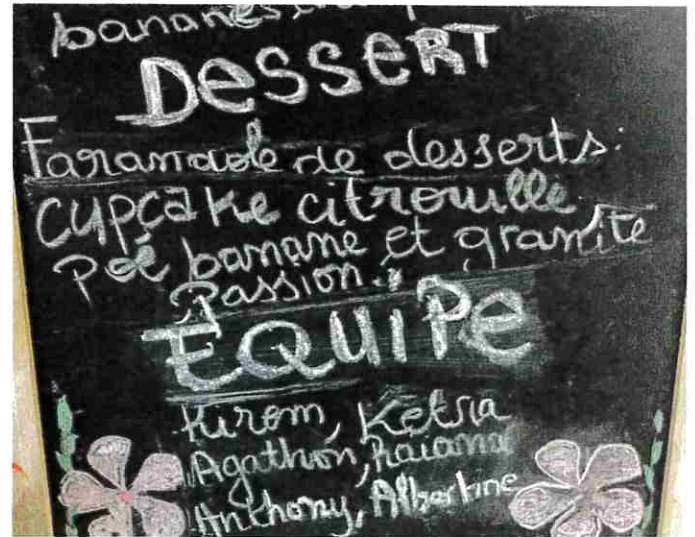 bananes
DESSERT
Farandole de desserts:
cupcake citrouille
Poé banane et granité
Passion.
EQUIPE
Kirom, Ketsia
Agathon, Raiana
Anthony, Albertine